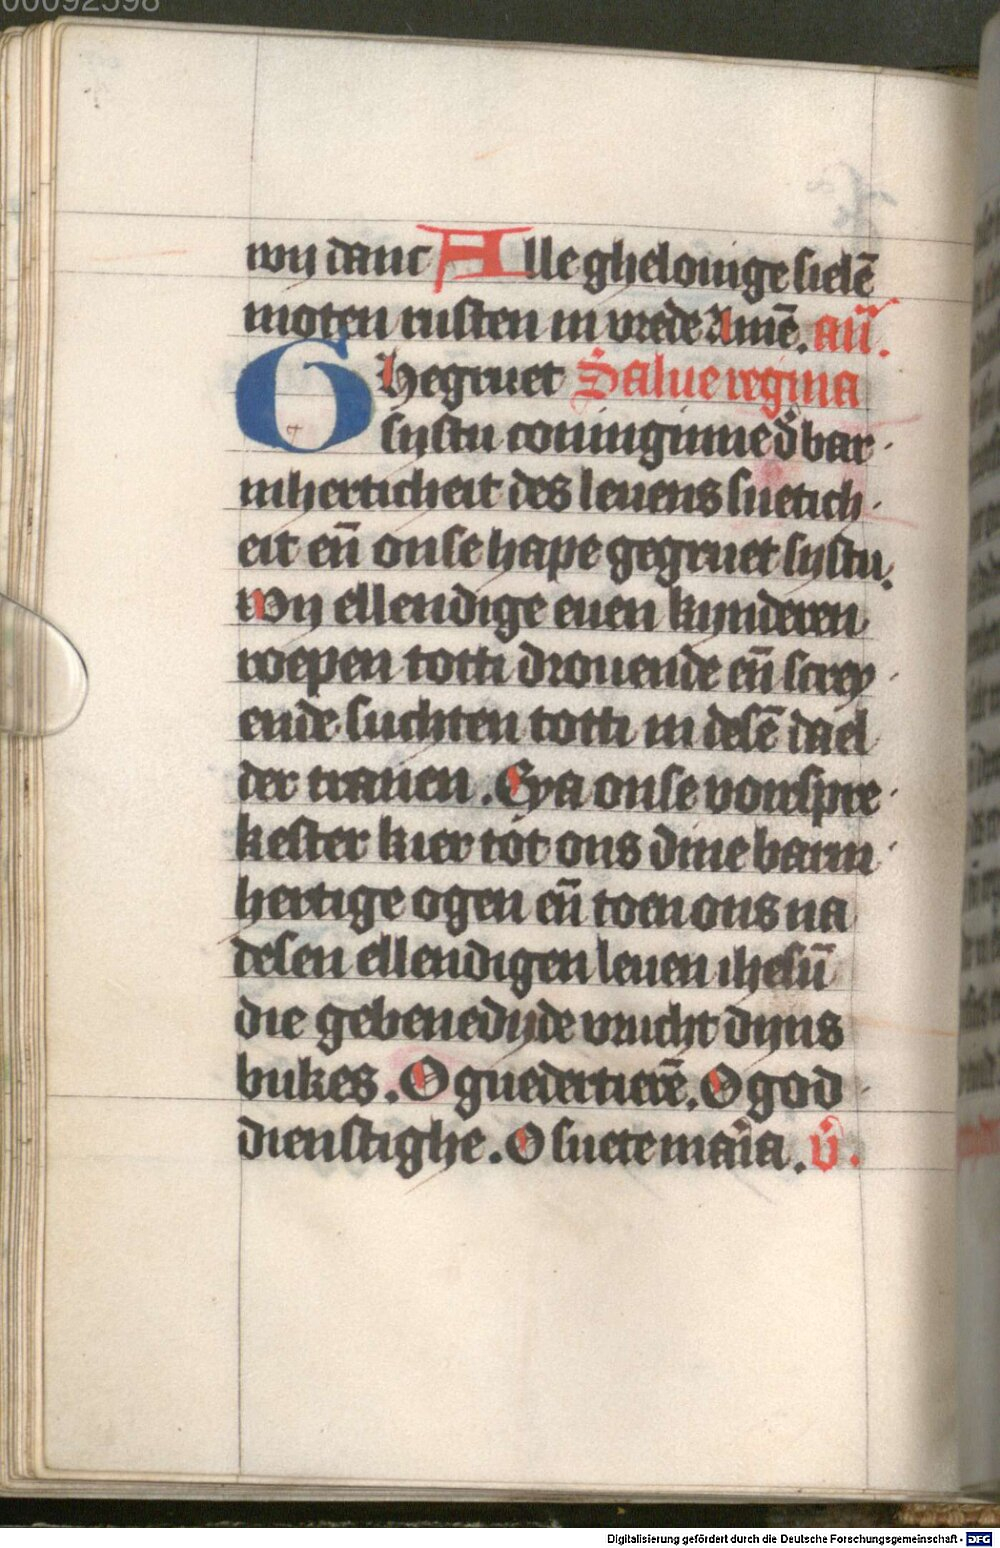 00092598
wij danc Alle ghelouige sielē
moten rusten in vrede Amē. añ.
Ghegruet Salue regina
systu coninginne d̕ bar
mherticheit des leuens suetich
eit en̄ onse hape gegruet systu.
Wij ellendige euen kynderen
roepen totti drouende en̄ screy
ende suchten totti in desē dael
der tranen. Eya onse vorrspre
kester kier tot ons dine barm
hertige ogen en̄ toen ons na
desen ellendigen leuen ihesū
die gebenedijde vrucht dijns
bukes. O guedertierē. O god
dienstighe. O suete maria. v̄.
Digitalisierung gefördert durch die Deutsche Forschungsgemeinschaft - DFG